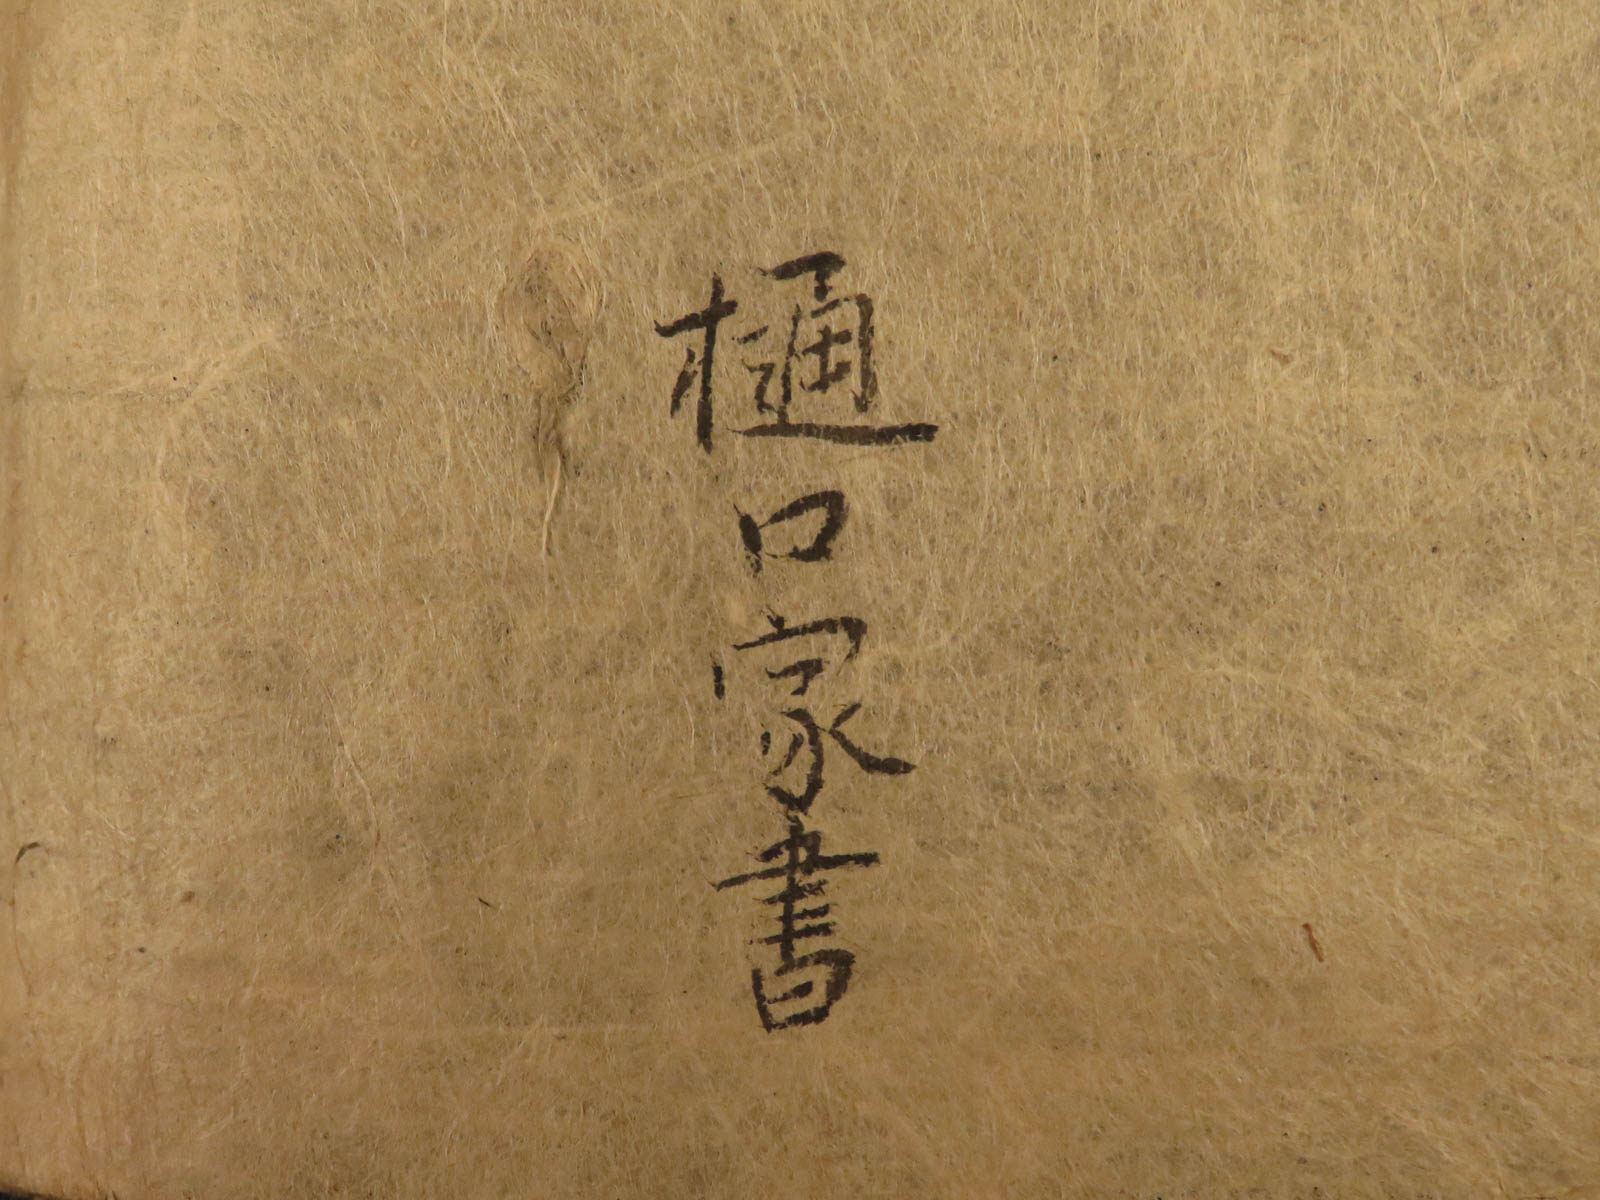 樋口家書